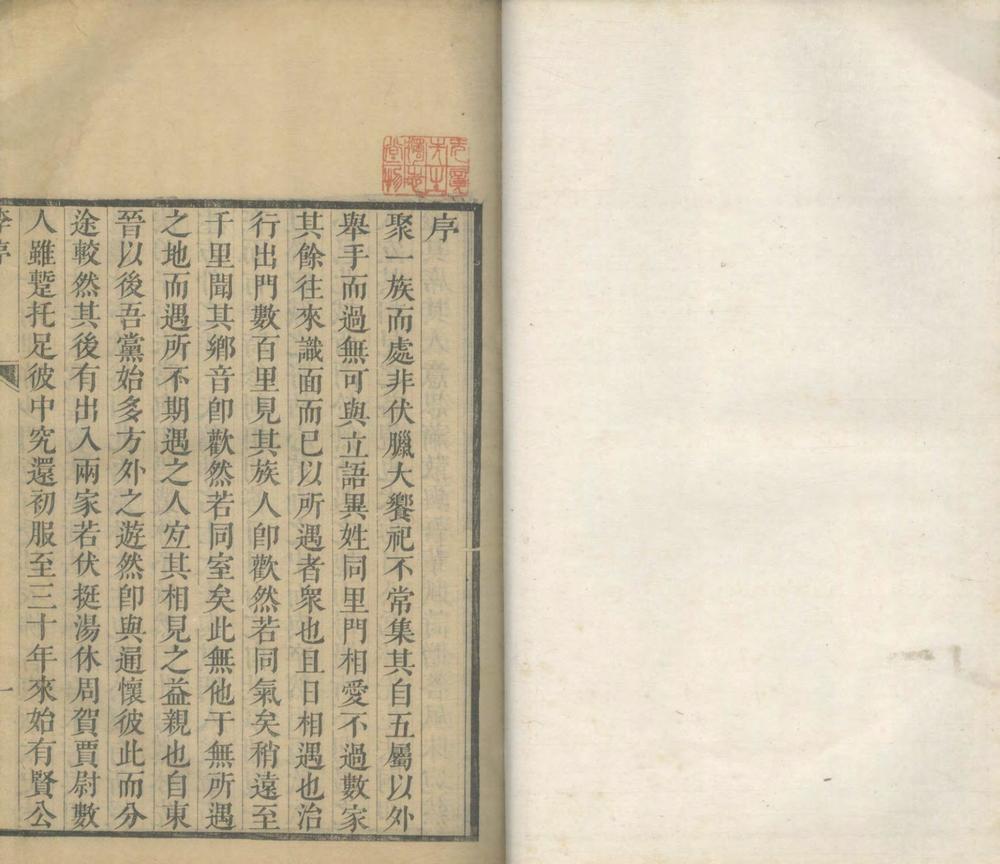 序
聚一族而處非伏臘大饗祀不常集其自五屬以外
舉手而過無可與立語異姓同里門相愛不過數家
其餘往來識面而已以所遇者衆也且日相遇也治
行出門數百里見其族人卽歡然若同氣矣稍遠至
千里聞其鄉音卽歡然若同室矣此無他于無所遇
之地而遇所不期遇之人宐其相見之益親也自東
晉以後吾黨始多方外之遊然卽與通懷彼此而分
途較然其後有出入兩家若伏挺湯休周賀賈尉數
人雖蹔托足彼中究還初服至三十年來始有賢公
序
一